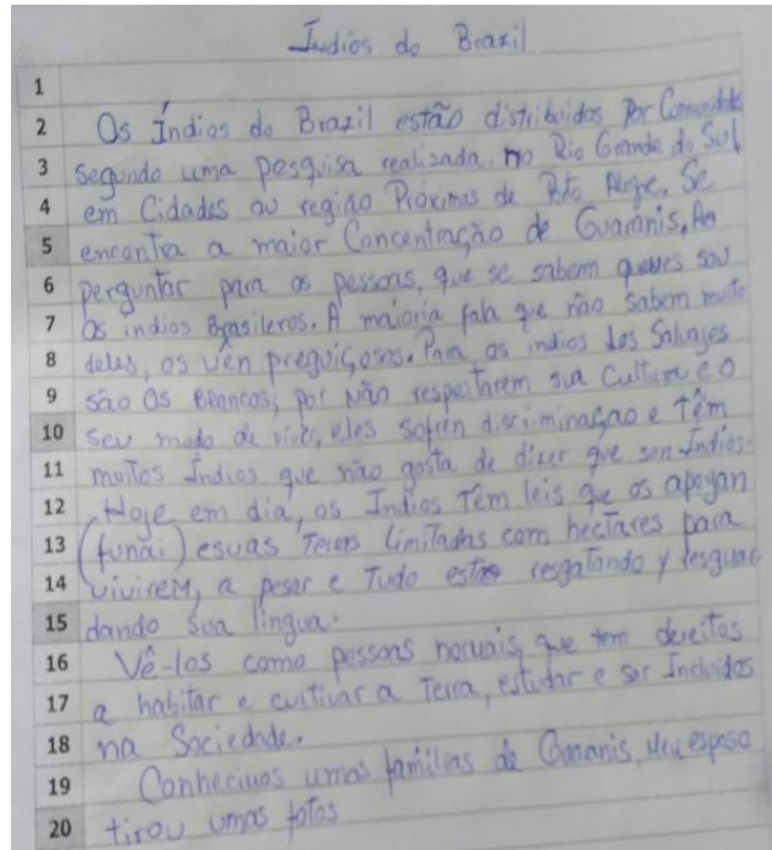 Índios do Brazil
1
2 Os Índios do Brazil estão distribuidos Por Comunidade
3 segundo uma pesquisa realizada, no Rio Grande do Sul
4 em Cidades ou região Próximas de Porto Alegre, Se
5 encontra a maior Concentração de Guaranis, Ao
6 perguntar para as pessoas, que se sabem sou
7 Os indios Brasileros. A maioria fala que não sabem muito
8 deles, os vên preguiçosos. Para os indios los Salvajes
9 são Os BRANCOS, por Não respeitarem sua Cultura e o
10 seu modo de viver, eles sofren discriminação e Têm
11 muitos Índios que não gosta de dizer que son Índios.
12 Hoje em dia, os Índios Têm leis que os apoyan
13 (funai) e suas Terras limitadas com hectares para
14 vivirem, a pesar e Tudo estão resgatando y resguar
15 dando sua lingua.
16 Vê-los como pessoas normais, que tem dereitos
17 a habitar e cultivar a Terra, estudar e ser Incluidos
18 na Sociedade.
19 Conhecimos umas familias de Guaranis, Meu esposo
20 tirou umas fotos